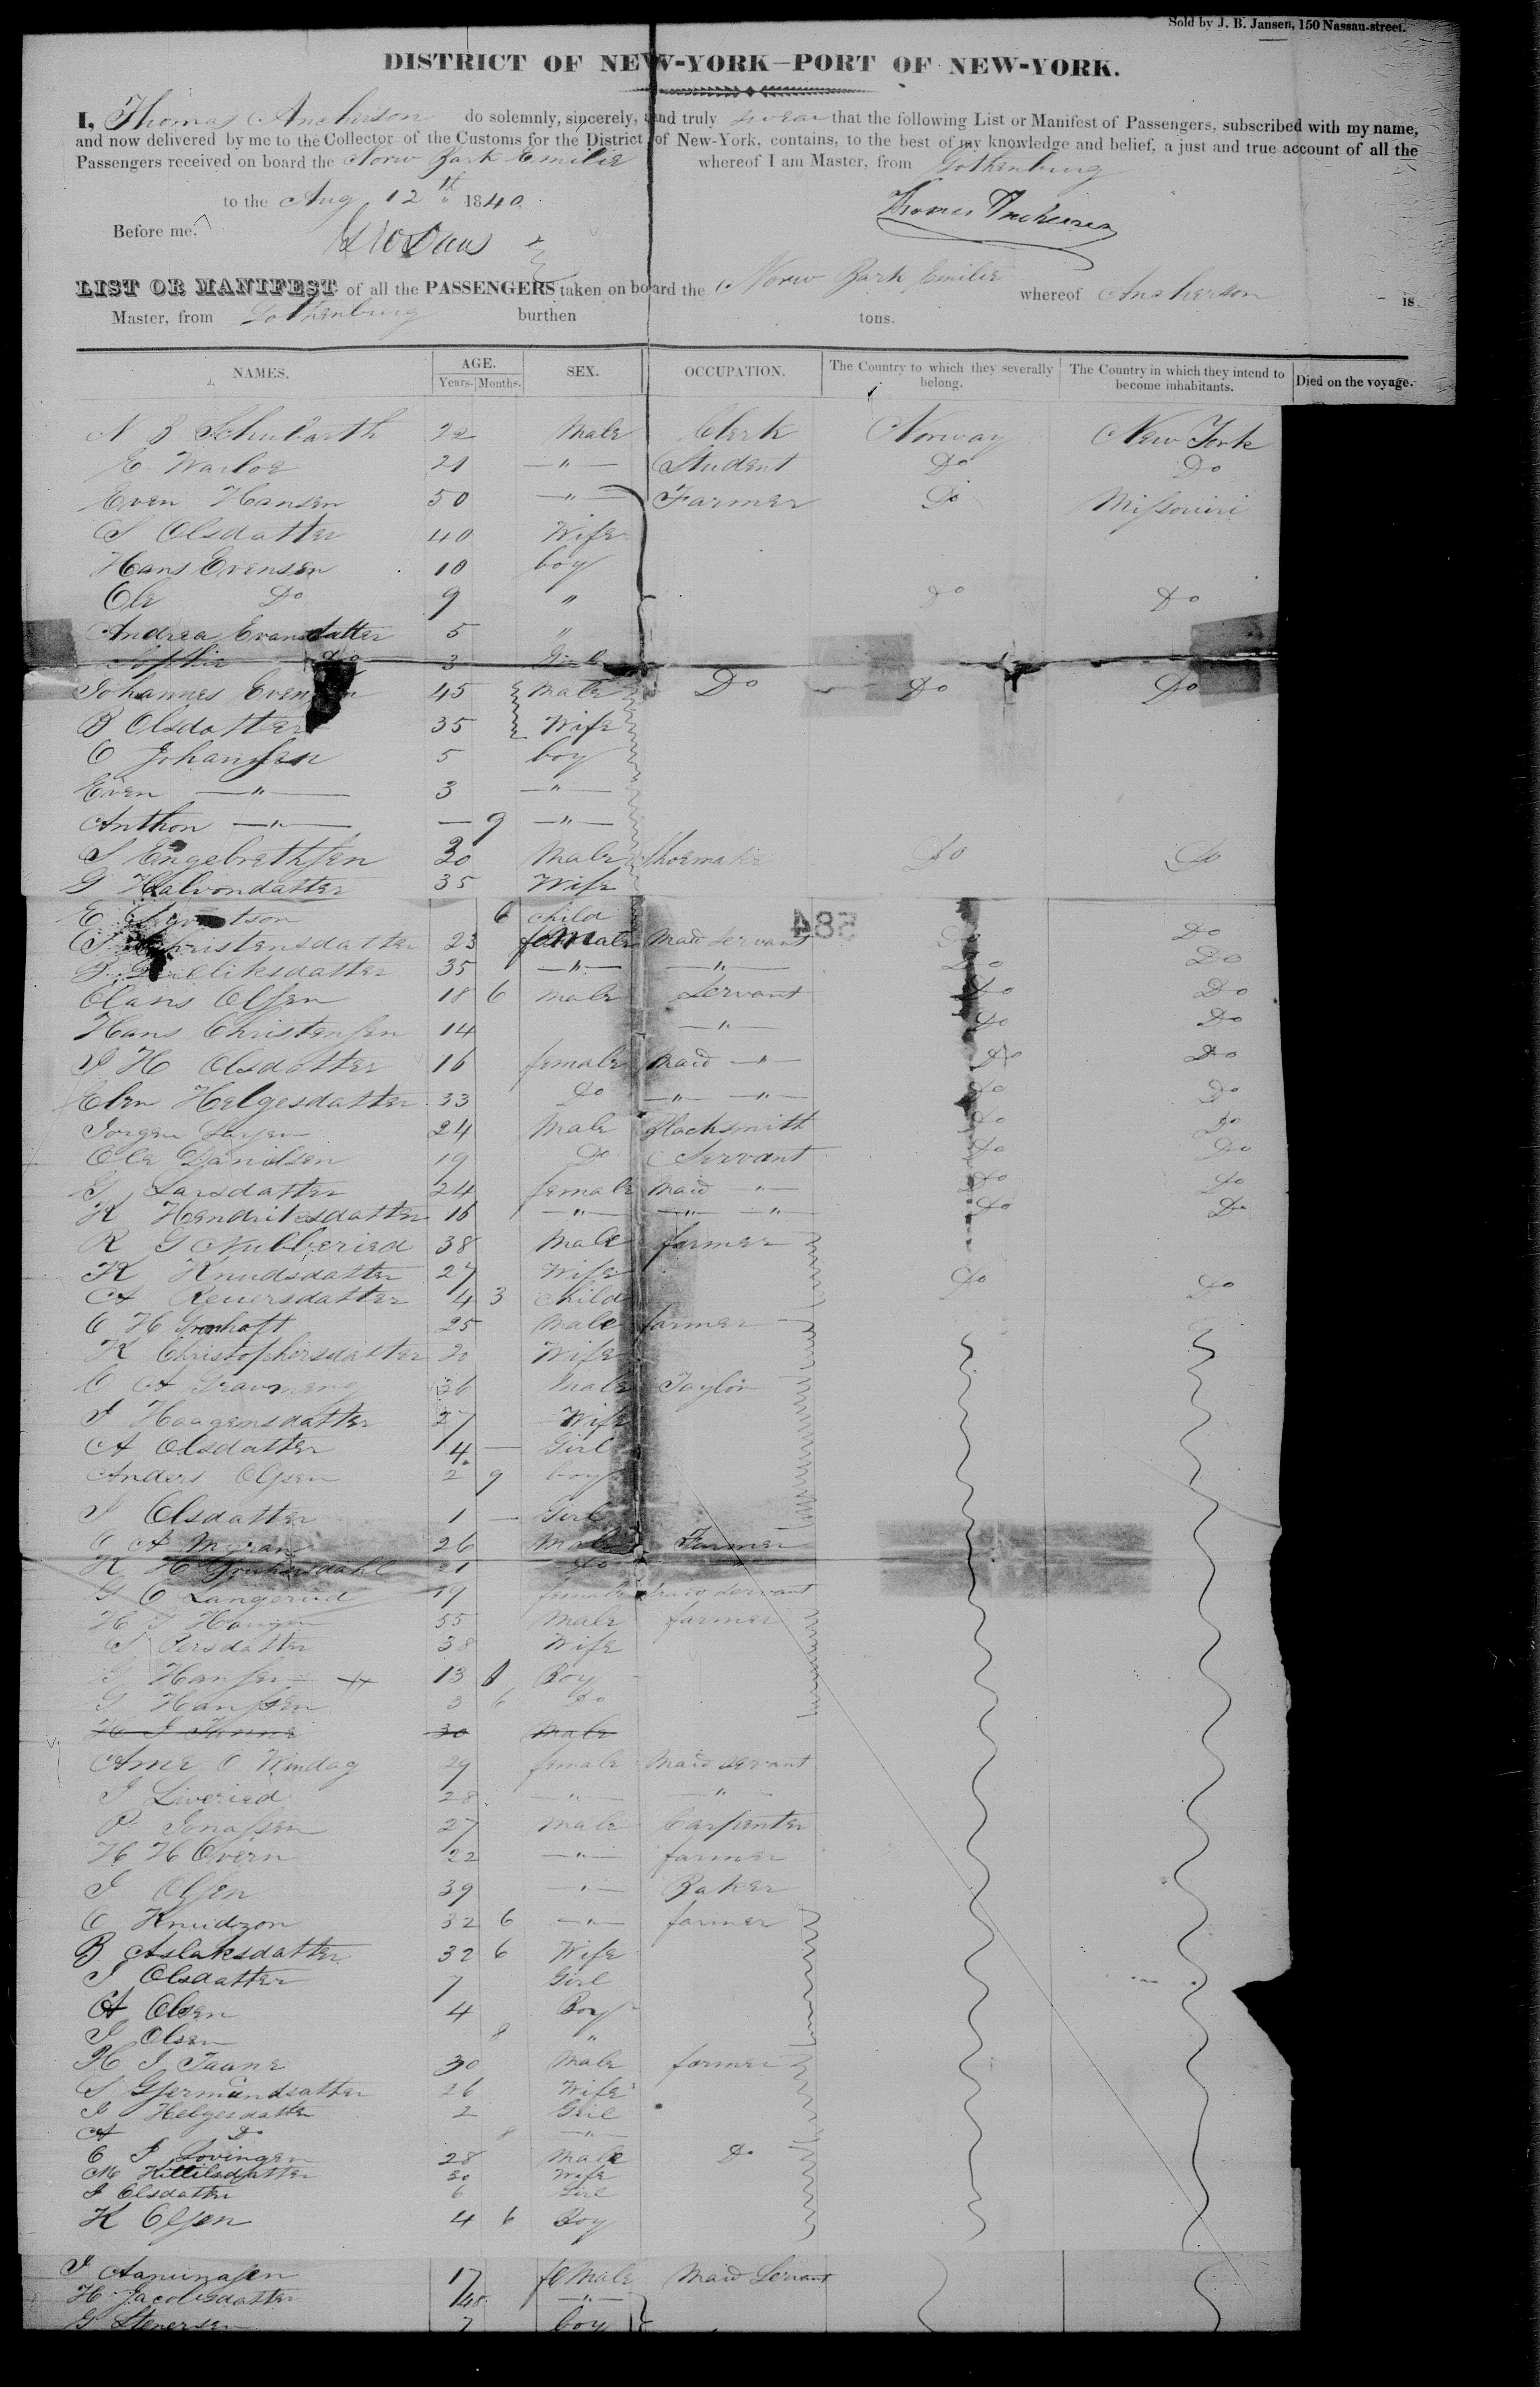 Sold by J. B. Jansen, 150 Nassau-street.
DISTRICT OF NEW-YORK—PORT OF NEW-YORK.
I, Thomas Ancherson do solemnly, sincerely, and truly swear that the following List or Manifest of Passengers, subscribed with my name,
and now delivered by me to the Collector of the Customs for the District of New-York, contains, to the best of my knowledge and belief, a just and true account of all the
Passengers received on board the Norw Bark Emilie whereof I am Master, from Gothenburg
to the Aug 12th 1840.
Before me.
LIST OR MANIFEST of all the PASSENGERS taken on board the Norw Bark Emilie whereof Ancherson is
Master, from Gothenburg burthen tons.
NAMES. AGE. Years. Months. SEX. OCCUPATION. The Country to which they severally belong. The Country in which they intend to become inhabitants. Died on the voyage.
N B Schubarth 22 Male Clerk Norway New York
E Warloe 21 —"— Student Do Do
Even Hansen 50 —"— Farmer Do Missouri
S Olsdatter 40 Wife
Hans Evensen 10 boy
Ole Do 9 " Do Do
Andrea Evansdatter 5 "
Sophie Do 3 Girl
Johannes Evensen 45 Male Do Do Do
B Olsdatter 35 Wife
O Johanssen 5 boy
Even —"— 3 —"—
Anthon —"— — 9 —"—
S Engebrethsen 30 Male Shoemaker Do Do
G Halvorsdatter 35 Wife
E 6 child
584
Christensdatter 23 female Maid Servant Do Do
35 —"— —"— Do Do
Olans Olsen 18 6 Male Servant Do Do
Hans Christensen 14 —"— Do Do
I H Olsdatter 16 female Maid —"— Do Do
Elen Helgesdatter 33 Do —"— —"— Do Do
Jorgen Larsen 24 Male Blacksmith Do Do
Ole Danielsen 19 Do Servant Do Do
G Larsdatter 24 female Maid —"— Do Do
K Hendriksdatter 16 —"— —"— —"— Do Do
R G Nubberied 38 Male farmer
K Knudsdatter 27 Wife Do Do
A Reiersdatter 4 3 Child
O H Gronhoft 25 Male farmer
K Christophersdatter 20 Wife
O A 36 Male Taylor
I Haagensdatter 27 Wife
A Olsdatter 4 — Girl
Anders Olsen 2 9 boy
I Olsdatter 1 — Girl
O A Myran 26 Male Farmer
K H 21 Do "
G O Langerud 19 female Maid Servant
H 55 Male farmer
S Persdatter 38 Wife
Hanssen 13 Boy
G Hanssen 3 6 Do
H I Taane 30 Male
Anne O Windag 29 female Maid Servant
I Liveried 28 —"— —"—
P Jonassen 27 Male Carpenter
H H Overn 22 —"— farmer
I Olsen 39 —"— Baker
O Knudzon 32 6 —"— farmer
B Aslaksdatter 32 6 Wife
I Olsdatter 7 Girl
A Olsen 4 Boy
I Olsen 8 "
H I Taane 30 Male farmer
S Gjermundsatter 26 Wife
I Helgesdatter 2 Girl
A Do 8 —"—
O P Lovingen 28 Male Do
M Kittilsdatter 30 Wife
I Olsdatter 6 Girl
K Olsen 4 6 Boy
I 17 female Maid Servant
H Jacobsdatter —"—
G Stenersen 7 boy